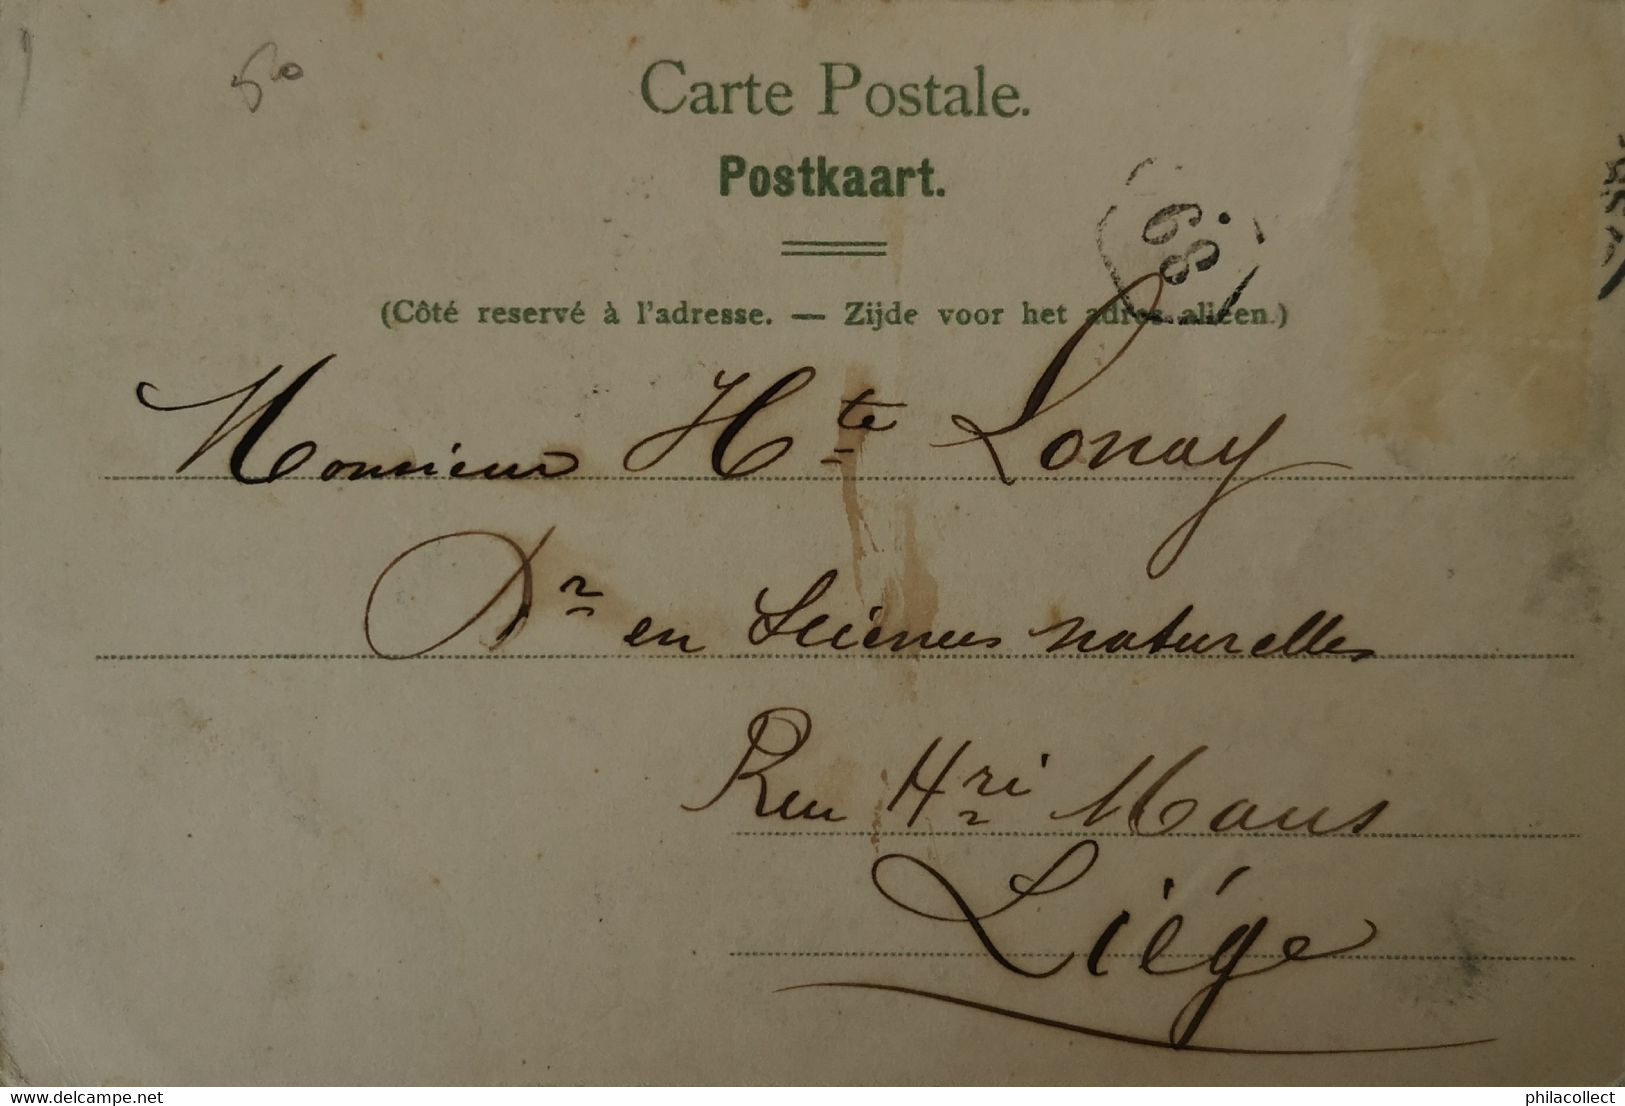 50
Carte Postale.
Postkaart.
68
(Côté reservé à l'adresse. — Zijde voor het adres alleen.)
Monsieur Hte Lonay
Dr en Sciences naturelles
Rue Hri Maus
Liége
www.delcampe.net
philacollect